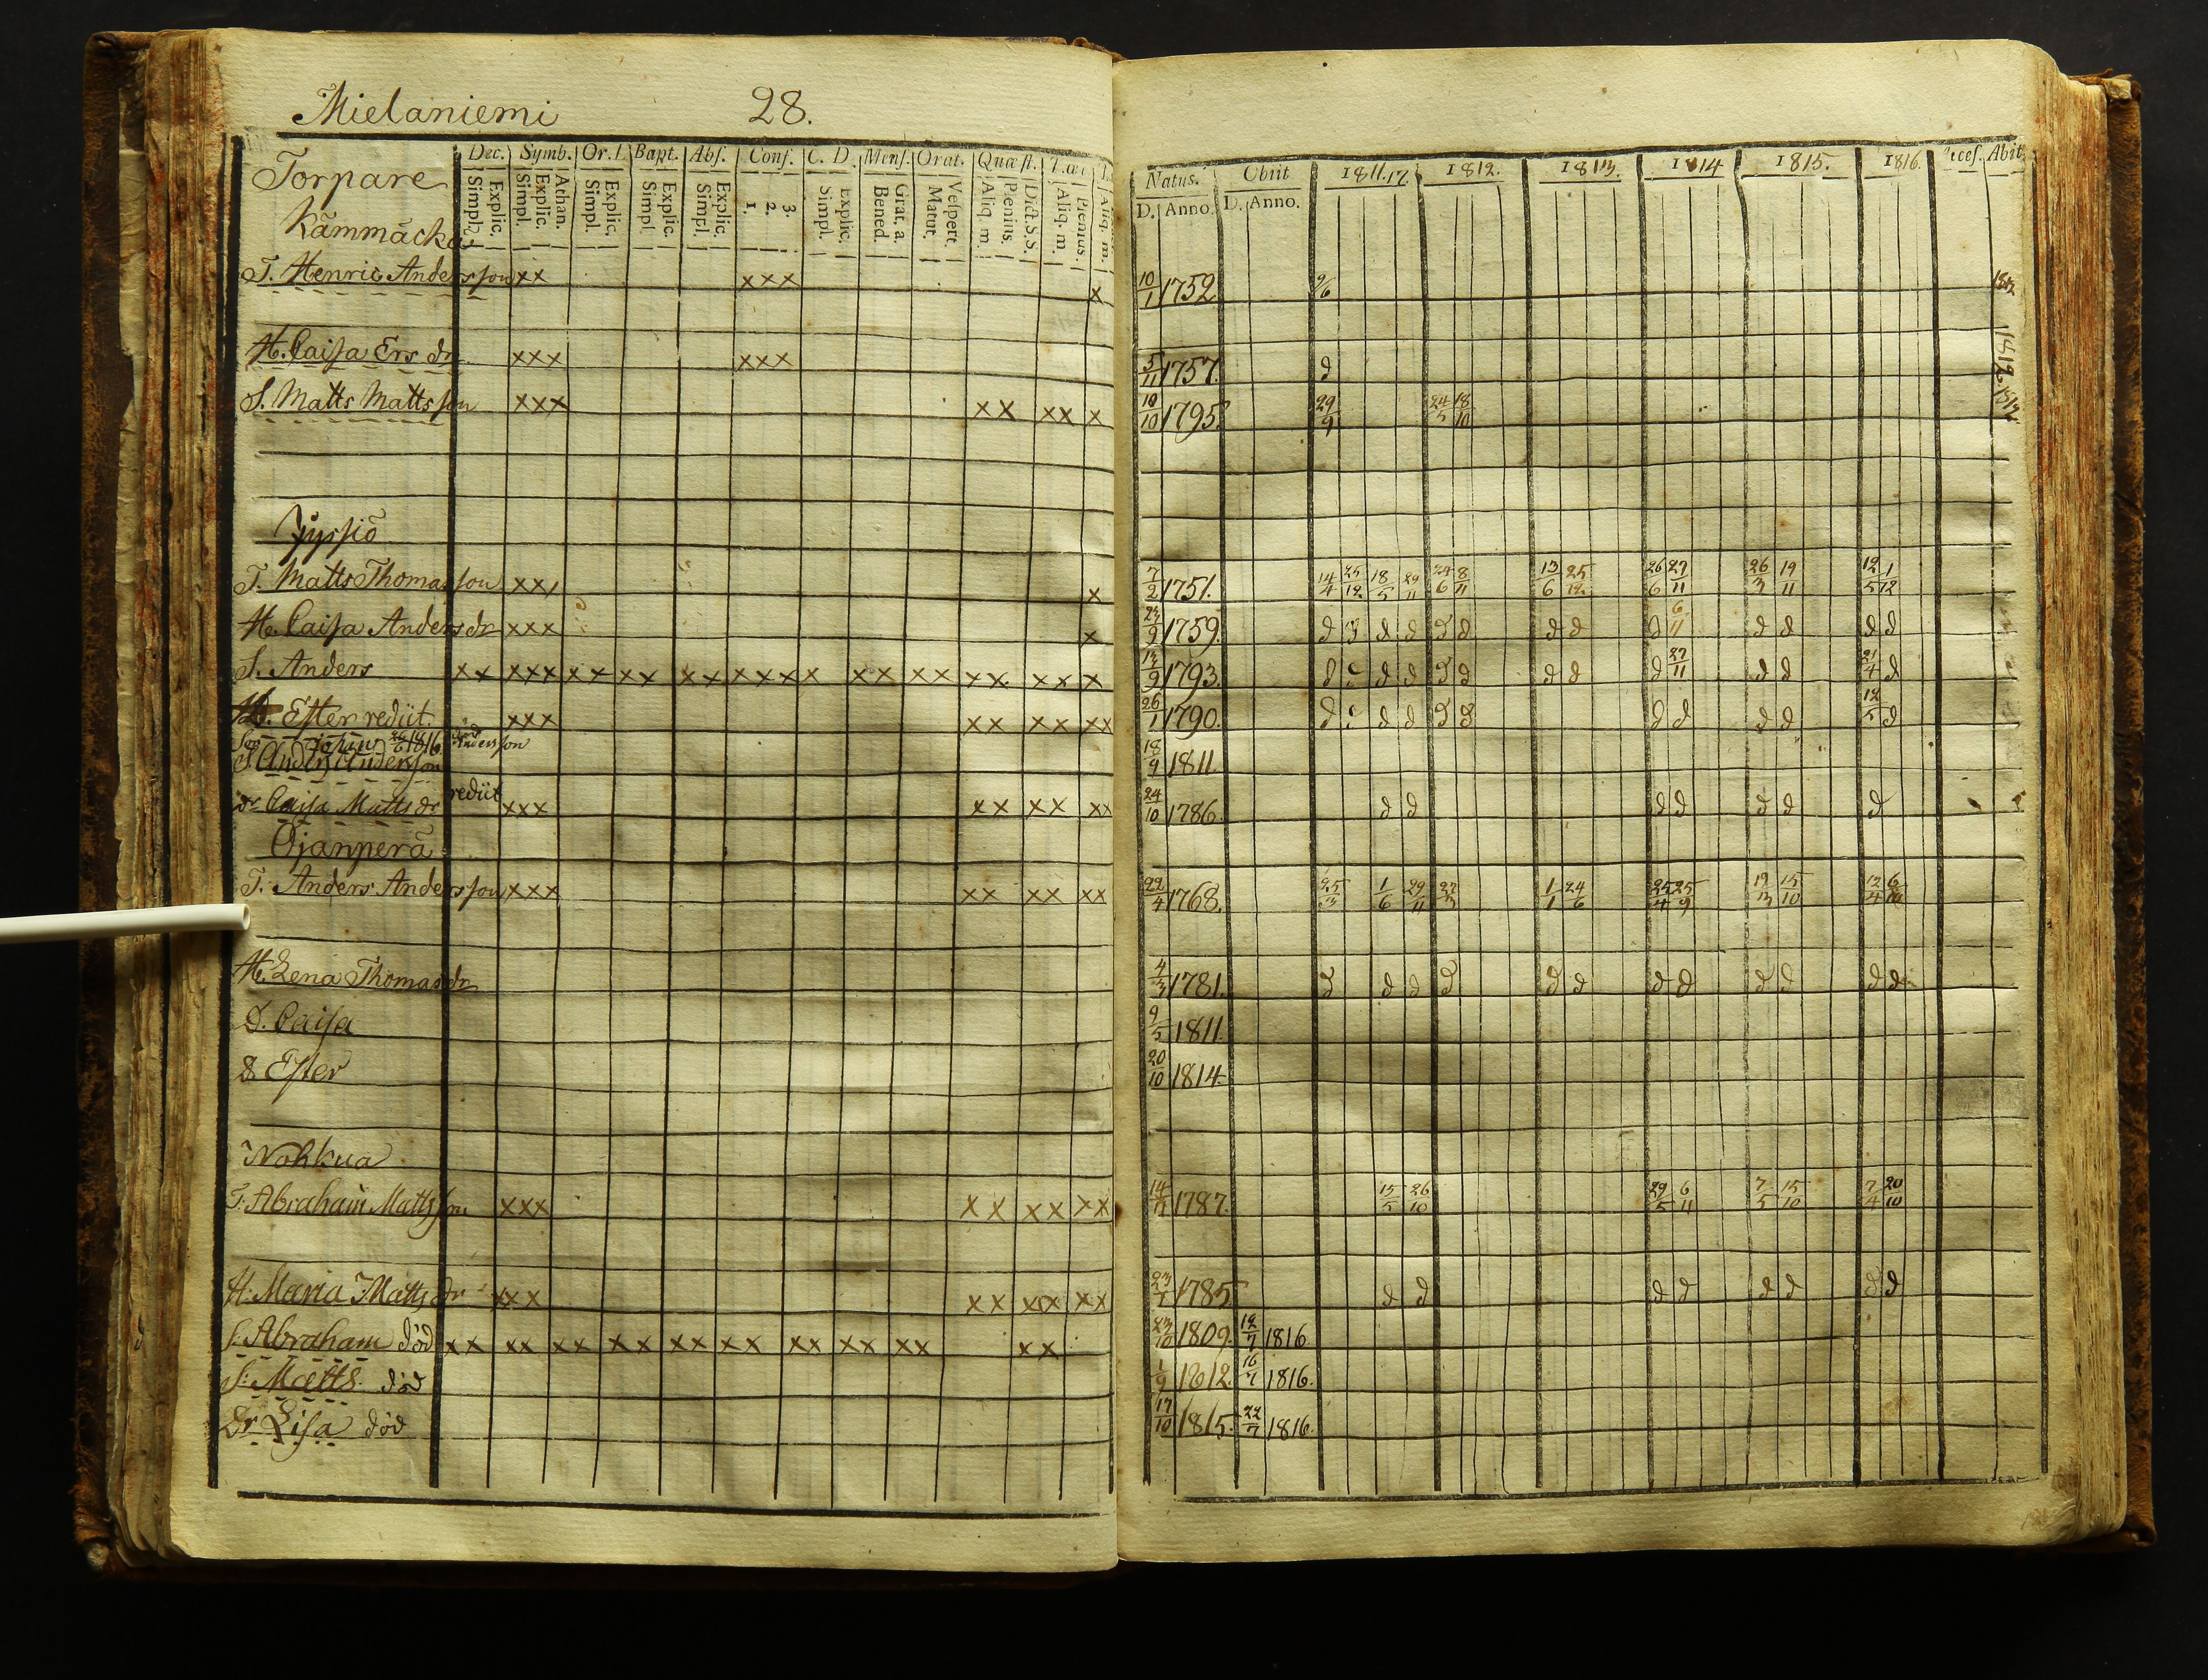 Mielaniemi 28.
Dec. Symb. Or. D. Bapt. Abs. Conf. C. D. Mens. Orat. Quæst.
Natus. Obiit 1811.12. 1812. 1813. 1814 1815. 1816. Abit.
Torpare
Explic. Simpl. Athan. Explic. Simpl. Explic. Simpl. Explic. Simpl. Explic. Simpl. 3. 2. 1. Explic. Simpl. Grat. a. Bened. Vespert. Matut. Dict. S. S. Plenius. Aliq. m. Plenius. Aliq. m. Aliq. m.
D. Anno. D. Anno.
Kämmäckä
T. Henric Andersson xx xxx x 10/1 1752 9/6
H. Caisa Ers dr xxx xxx 5/11 1757. d 1812
S. Matts Mattsson xxx xx xx x 10/10 1795. 29/9 24/5 18/10
Jyssiö
T. Matts Thomasson xxx x 7/2 1751. 14/4 25/12 18/5 29/11 24/6 8/11 13/6 25/12 26/6 27/11 26/3 19/11 12/5 1/12
H. Caisa Andersdr xxx x 1759. d d d d d d d d d 6/11 d d d d
S. Anders xx xxx xx xx xx xxx x xx xx xx xx x 1793. d d d d d d d d d 27/11 d d 21/4 d
Ester rediit. xxx xx xx xx 26/1 1790. d d d d d d d d d 12/5 d
Johan 1816 Andersson
Anders Andersson 18/9 1811.
dr Caisa Matts dr rediit xxx xx xx xx 24/10 1786. d d d d d d d
Ojanperä
T. Anders Andersson xxx xx xx xx 22/4 1768. 25/3 1/6 29/11 27/3 1/1 24/6 25/4 25/9 19/3 15/10 12/4 6/10
H. Lena Thomasdr 4/3 1781. d d d d d d d d d d d d
D. Caisa 9/5 1811.
D. Ester 20/10 1814.
Nohkua
T. Abraham Mattsson xxx xx xx xx 1787. 15/5 26/10 29/5 6/11 7/5 15/10 7/4 20/10
H. Maria Matts dr xxx xx xx xx 23/7 1785 d d d d d d d d
S. Abraham död xx xx xx xx xx xx xx xx xx xx 23/10 1809. 12/7 1816
S. Matts. död 1/9 1812 16/7 1816.
Dr Lisa död 17/10 1815. 22/7 1816.